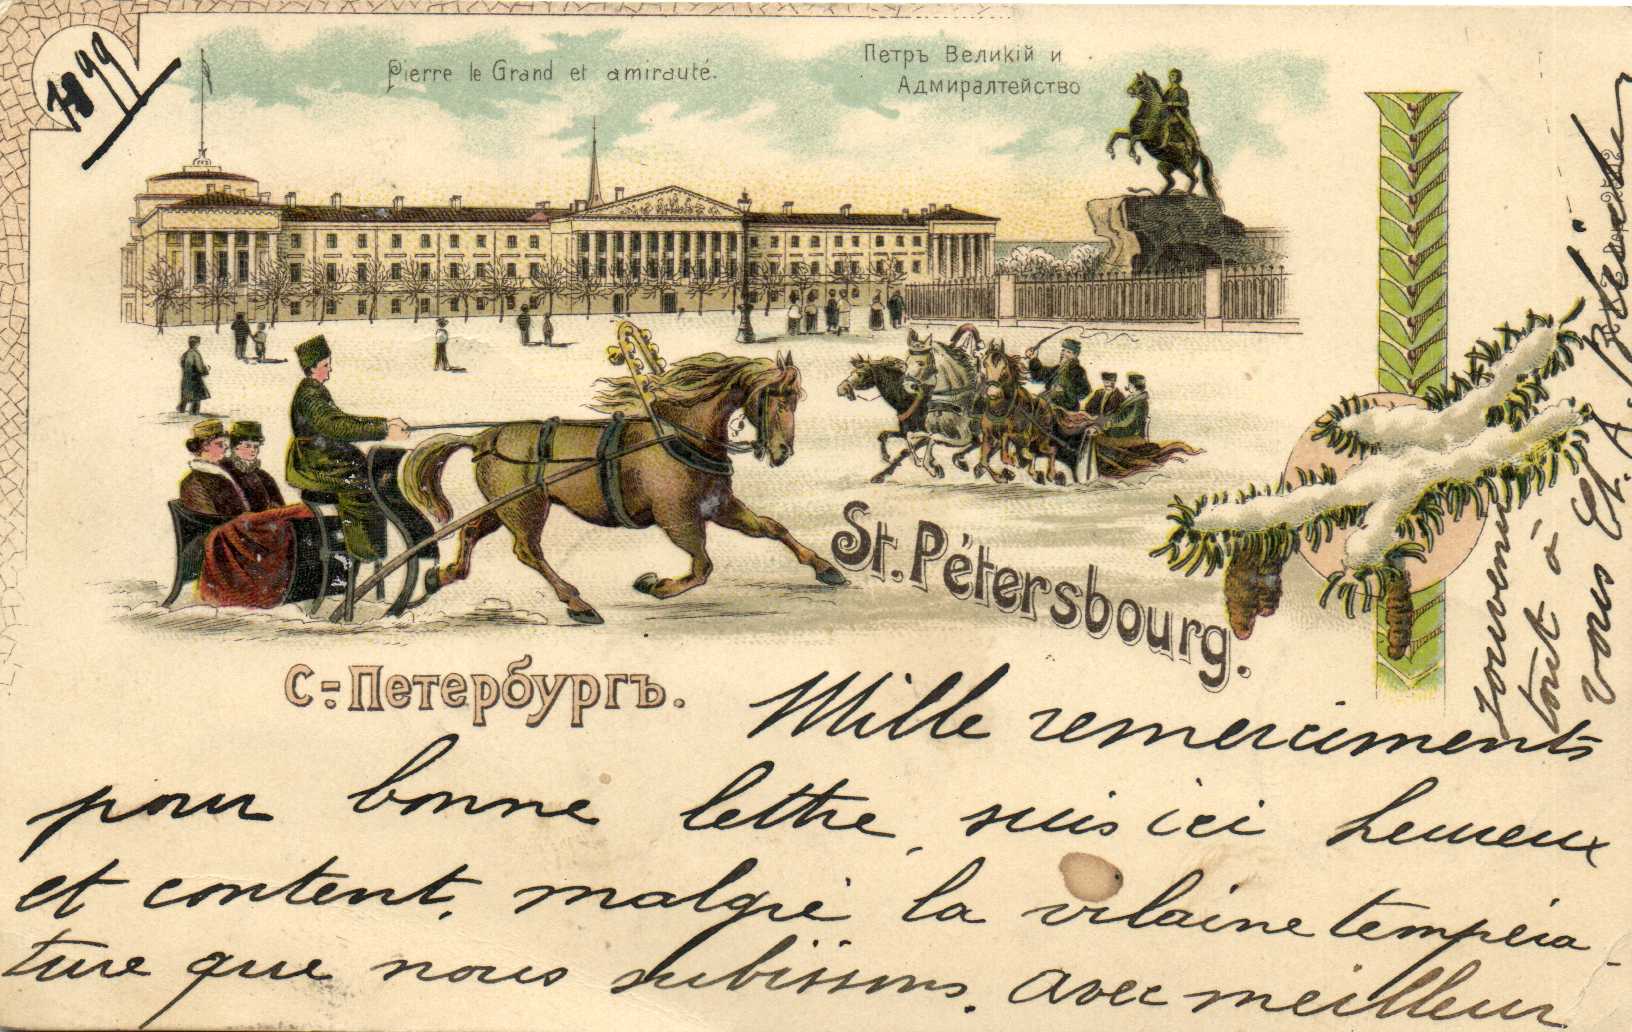 1899
Pierre le Grand et amirauté.
Петръ Великій и
Адмиралтейство
St. Pétersbourg.
С.-Петербургъ.
Mille remerciments
pour bonne lettre, suis ici heureux
et content, malgré la vilaine tempéra-
ture que nous subissons. Avec meilleur
souvenir
tout à
vous